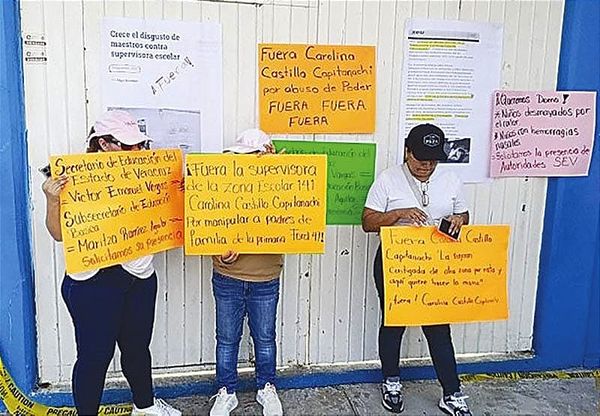 Crece el disgusto de
maestros contra
supervisora escolar
¡A FUERA!!
Fuera Carolina
Castillo Capitanachi
por abuso de Poder
FUERA FUERA
FUERA
xeu
¡Queremos Domo!
* Niños desmayados por
el calor.
* Niños con hemorragias
nasales.
* Solicitamos la presencia
de Autoridades SEV
Secretario de Educación del
Estado de Veracruz
= Victor Emanuel Vargas
Subsecretario de Educación
Basica
= Maritza Ramirez Aguilar
Solicitamos su presencia
¡Fuera la supervisora
de la zona Escolar 141
Carolina Castillo Capitanachi
Por manipular a padres de
familia de la primaria Ford 411
Educación
Vargas
Educación
Basica
Aguilar
Fuera Castillo
Capitanachi "La trajeron
Castigada de otra zona por esto y
aquí quiere hacer lo mismo"
¡fuera! Carolina Castillo Capitanachi
CAUTION
CAUTION